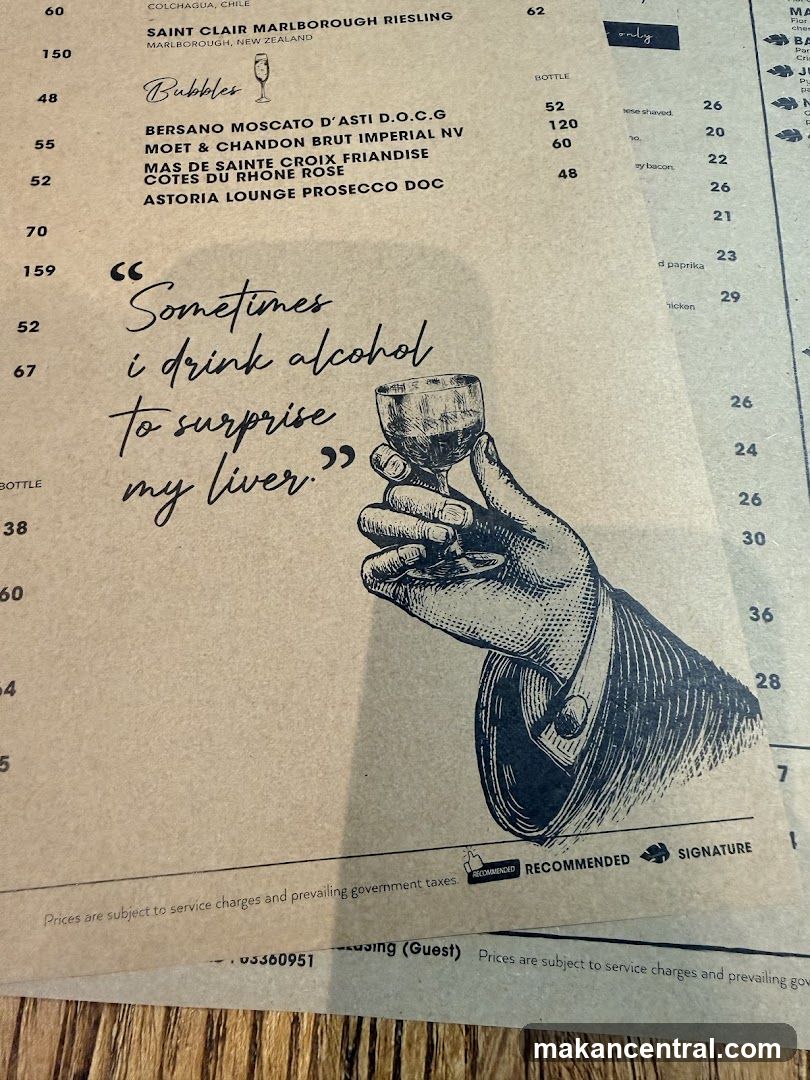 60
COLCHAGUA, CHILE
SAINT CLAIR MARLBOROUGH RIESLING 62
MARLBOROUGH, NEW ZEALAND
150
Bubbles
BOTTLE
48
BERSANO MOSCATO D'ASTI D.O.C.G 52
MOET & CHANDON BRUT IMPERIAL NV 120
55
MAS DE SAINTE CROIX FRIANDISE 60
COTES DU RHONE ROSE
52
ASTORIA LOUNGE PROSECCO DOC 48
70
159
52
67
BOTTLE
38
60
“Sometimes
i drink alcohol
to surprise
my liver.”
RECOMMENDED
RECOMMENDED
SIGNATURE
Prices are subject to service charges and prevailing government taxes.
only
26
20
22
26
21
d paprika 23
29
26
24
26
30
36
28
7
03360951
(Guest)
Prices are subject to service charges and prevailing
makancentral.com